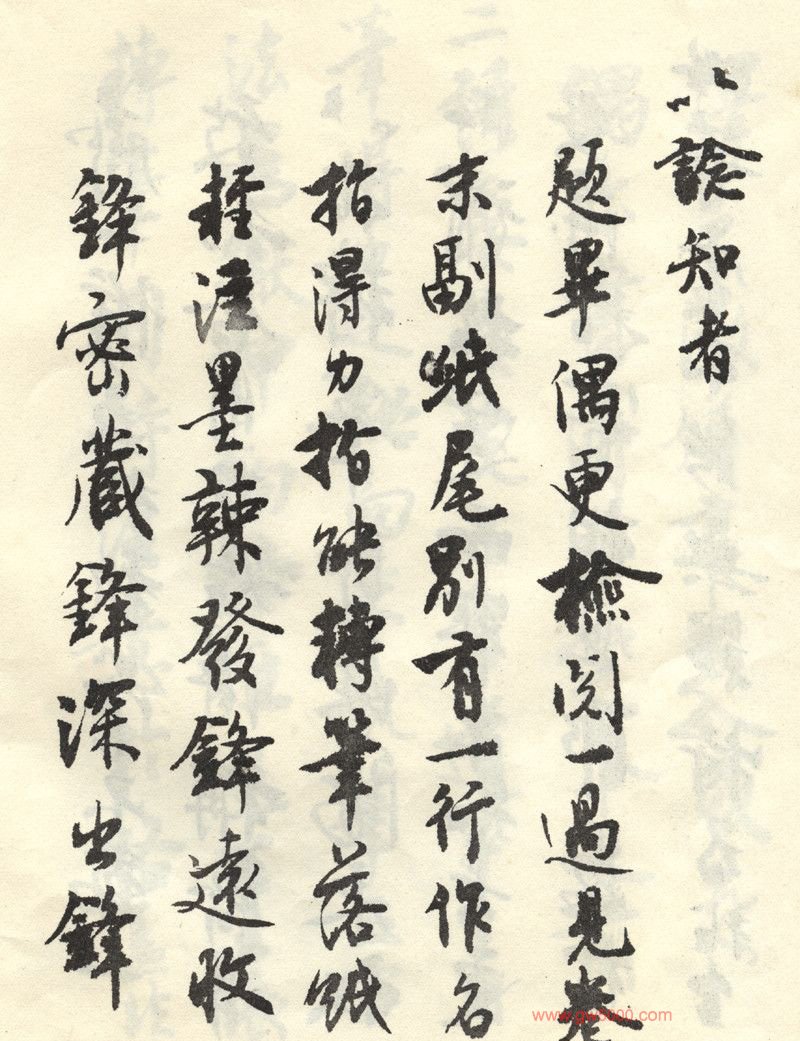 以諗知者
題畢偶更檢閱一過見卷
末副紙尾別有一行作名
指得力指能轉筆落紙
輕注墨辣發鋒遠收
鋒密藏鋒深出鋒
www.gw5000.com